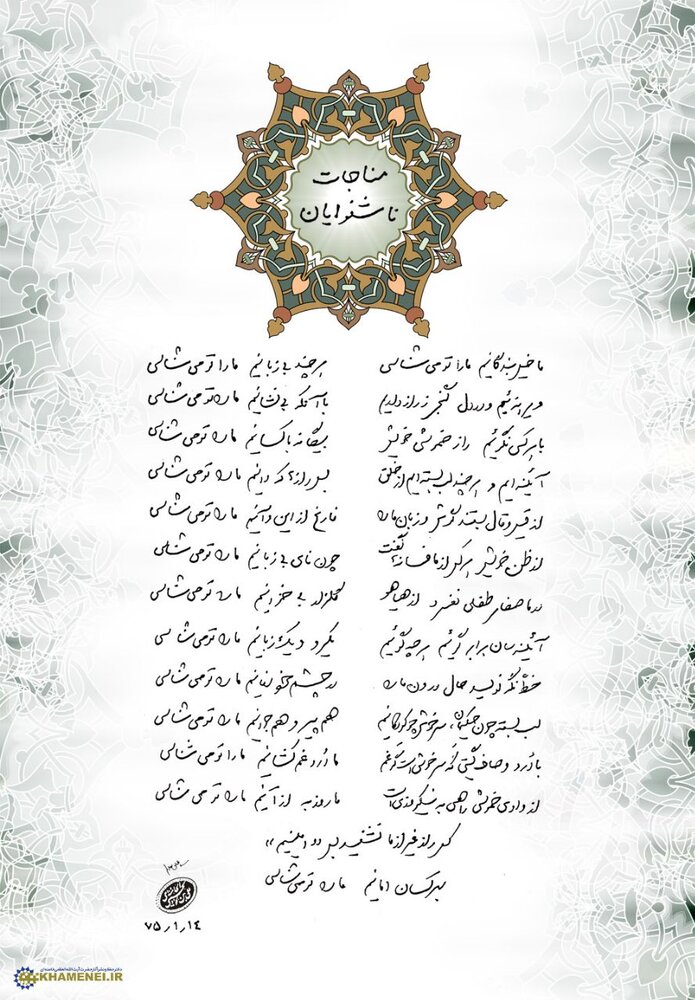 مناجات
ناشنوایان
ما خیل بندگانیم ما را تو می‌شناسی
هر چند بی‌زبانیم ما را تو می‌شناسی
ویرانه‌ئیم و در دل گنجی ز راز داریم
با آنکه بی‌نشانیم ما را تو می‌شناسی
با هر کسی نگوئیم راز خموشی خویش
بیگانه با کسانیم ما را تو می‌شناسی
آئینه‌ایم و هر چند لب بسته‌ایم از خلق
بس رازها که دانیم ما را تو می‌شناسی
از قیل و قال بستند گوش و زبان ما را
فارغ از این و آنیم ما را تو می‌شناسی
از ظن خویش هر کس از ما فسانه‌ها گفت
چون نای بی‌زبانیم ما را تو می‌شناسی
در ما صفای طفلی نفسرد از هیاهو
گلزار بی‌خزانیم ما را تو می‌شناسی
آئینه‌سان برابر گوئیم هر چه گوئیم
یکرو و یک‌زبانیم ما را تو می‌شناسی
خطّ نگه نویسد حال درون ما را
در چشم خود نهانیم ما را تو می‌شناسی
لب بسته چون حکیمان، سرخوش چو کودکانیم
هم پیر و هم جوانیم ما را تو می‌شناسی
با دُرد و صاف گیتی گه سرخوش است گه غم
ما دُرد غم کشانیم ما را تو می‌شناسی
از وادی خموشی راهی به نیکروزی است
ما روز به از آنیم ما را تو می‌شناسی
کس راز غیر از ما نشنید بس «امینیم»
بهر کسان امانیم ما را تو می‌شناسی
۷۵/۱/۱۴
KHAMENEI.IR